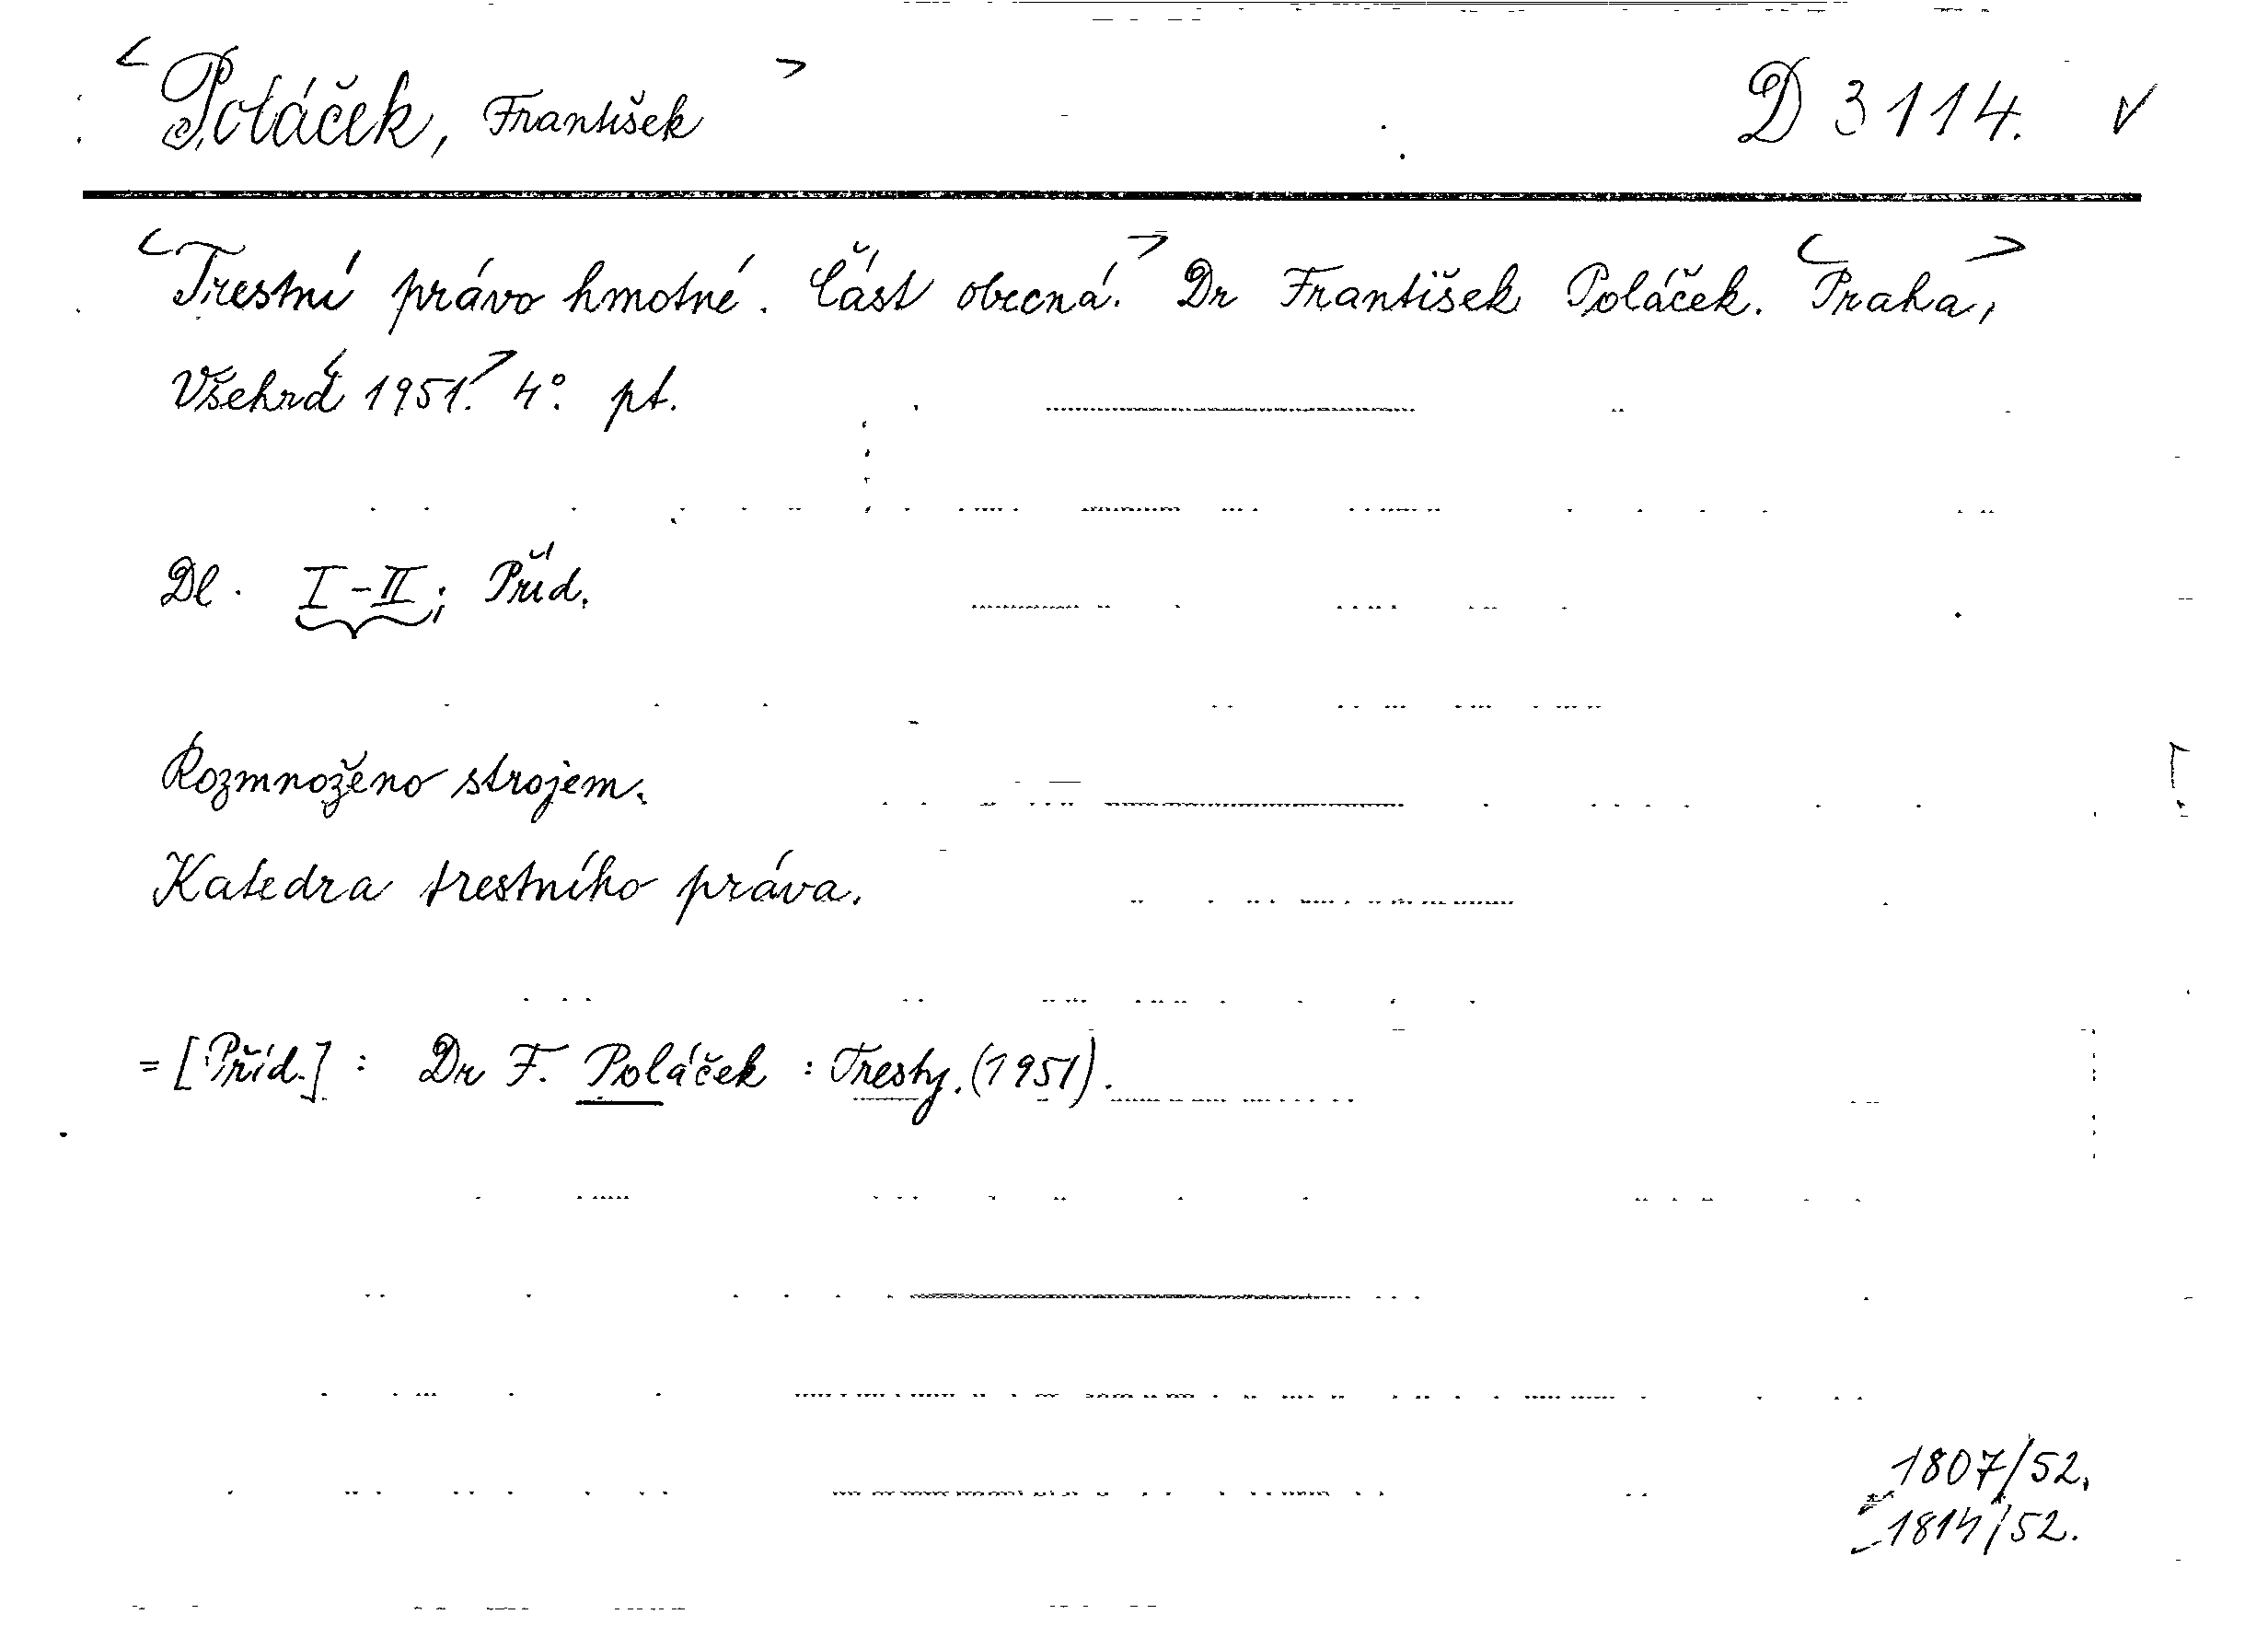 < Poláček, František > D 3114. √
< Trestní právo hmotné. Část obecná. > Dr František Poláček. < Praha, >
Všehrd < 1951. > 4°. pt.
Dl. I-II; Příd.
Rozmnoženo strojem.
Katedra trestního práva.
= [Příd.] : Dr F. Poláček : Tresty. (1951).
1807/52,
1814/52.